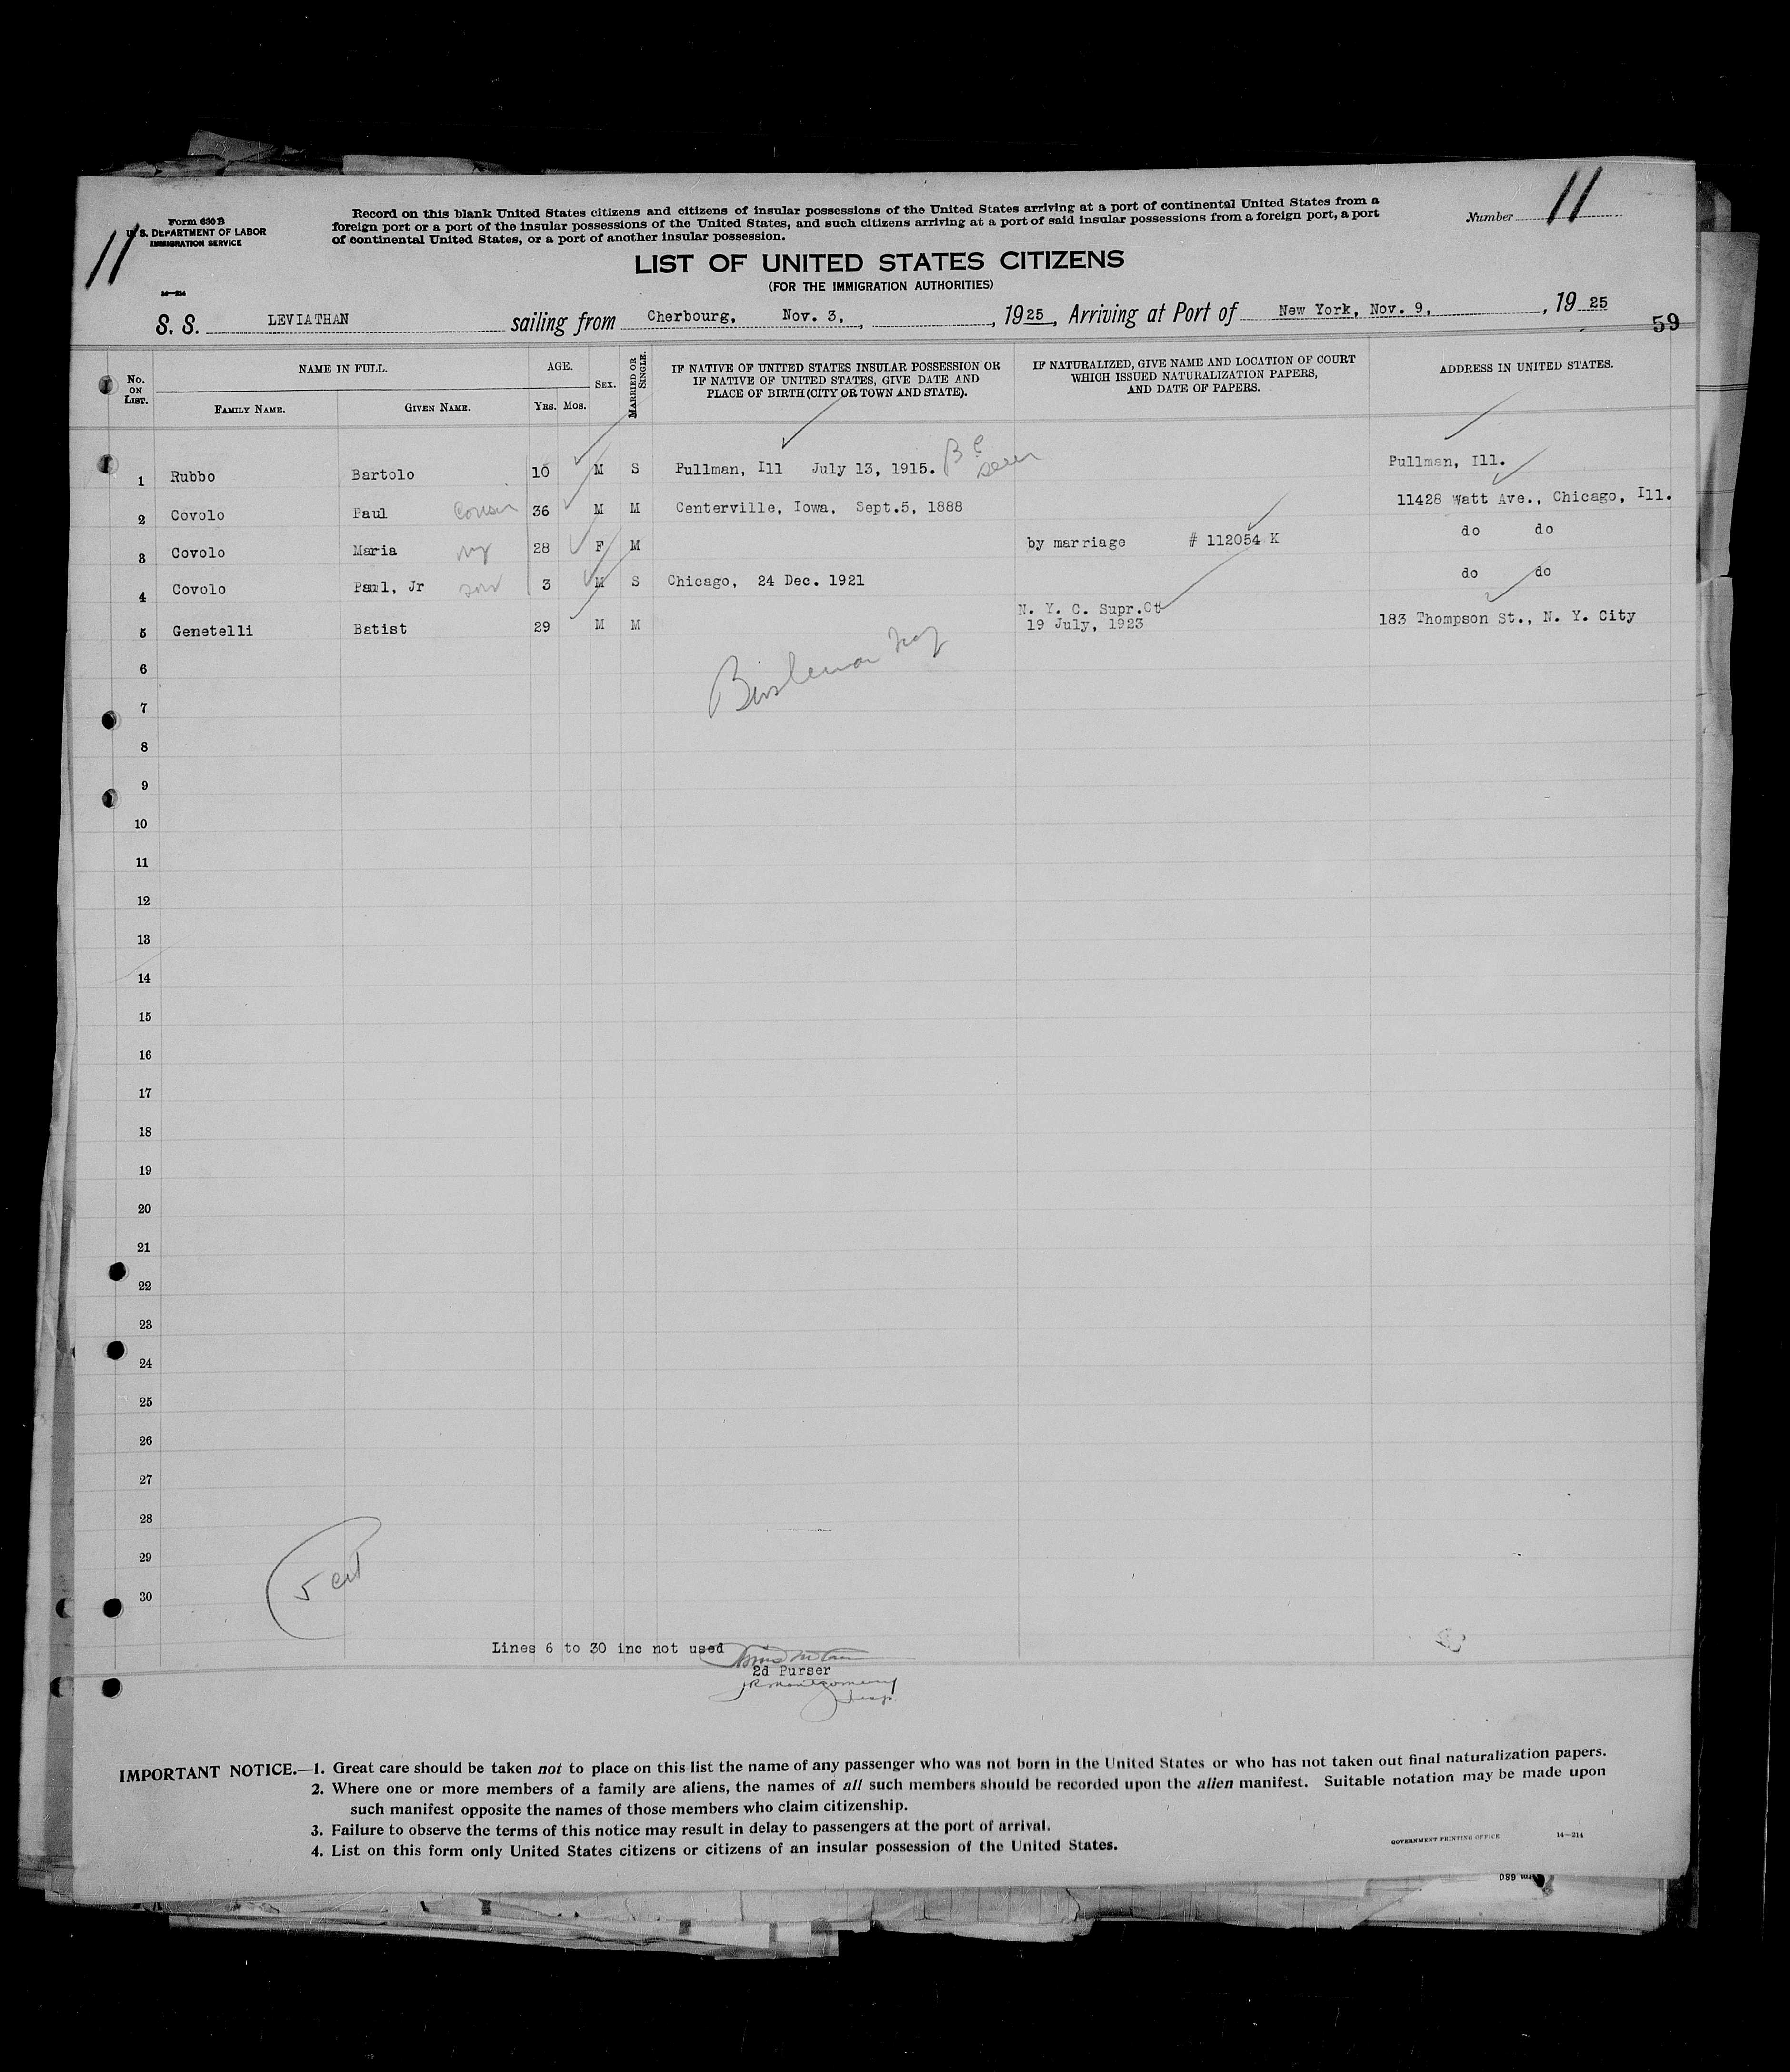 Form 630 B
U. S. DEPARTMENT OF LABOR
IMMIGRATION SERVICE
11
14—214
Record on this blank United States citizens and citizens of insular possessions of the United States arriving at a port of continental United States from a
foreign port or a port of the insular possessions of the United States, and such citizens arriving at a port of said insular possessions from a foreign port, a port
of continental United States, or a port of another insular possession.
Number 11
LIST OF UNITED STATES CITIZENS
(FOR THE IMMIGRATION AUTHORITIES)
S. S. LEVIATHAN sailing from Cherbourg, Nov. 3, , 1925, Arriving at Port of New York, Nov. 9, , 19 25
59
No. ON LIST. NAME IN FULL. AGE. SEX. MARRIED OR SINGLE. IF NATIVE OF UNITED STATES INSULAR POSSESSION OR IF NATIVE OF UNITED STATES, GIVE DATE AND PLACE OF BIRTH (CITY OR TOWN AND STATE). IF NATURALIZED, GIVE NAME AND LOCATION OF COURT WHICH ISSUED NATURALIZATION PAPERS, AND DATE OF PAPERS. ADDRESS IN UNITED STATES.
FAMILY NAME. GIVEN NAME. YRS. MOS.
1 Rubbo Bartolo 10 M S Pullman, Ill July 13, 1915. BC seen Pullman, Ill.
2 Covolo Paul cousin 36 M M Centerville, Iowa, Sept.5, 1888 11428 Watt Ave., Chicago, Ill.
3 Covolo Maria 28 F M by marriage # 112054 K do do
4 Covolo Paul, Jr son 3 M S Chicago, 24 Dec. 1921 do do
5 Genetelli Batist 29 M M N. Y. C. Supr.Ct 19 July, 1923 183 Thompson St., N. Y. City
6
7
8
9
10
11
12
13
14
15
16
17
18
19
20
21
22
23
24
25
26
27
28
29
30
5 cit
Lines 6 to 30 inc not used
2d Purser
JR Montgomery
Insp.
IMPORTANT NOTICE.—1. Great care should be taken not to place on this list the name of any passenger who was not born in the United States or who has not taken out final naturalization papers.
2. Where one or more members of a family are aliens, the names of all such members should be recorded upon the alien manifest. Suitable notation may be made upon
such manifest opposite the names of those members who claim citizenship.
3. Failure to observe the terms of this notice may result in delay to passengers at the port of arrival.
4. List on this form only United States citizens or citizens of an insular possession of the United States.
GOVERNMENT PRINTING OFFICE 14—214